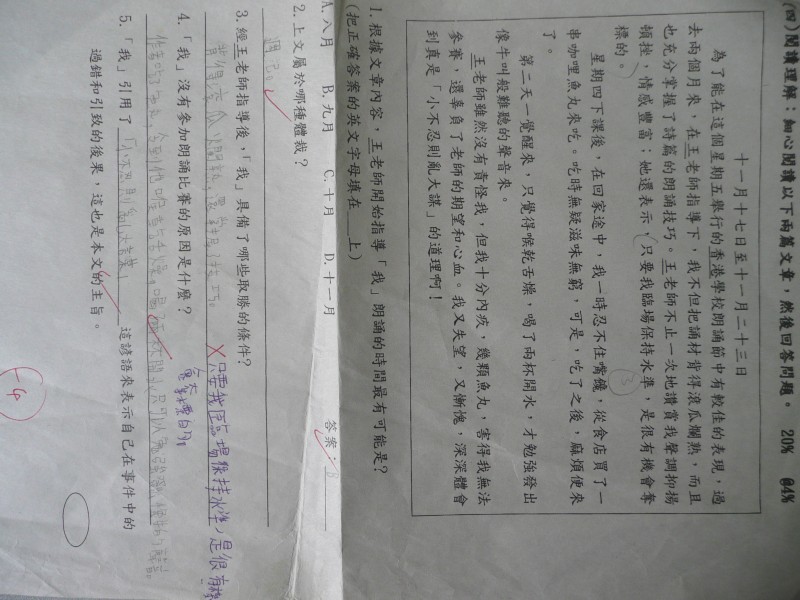 (四)閱讀理解：細心閱讀以下兩篇文章，然後回答問題。 20% @4%
十一月十七日至十一月二十三日
為了能在這個星期五舉行的香港學校朗誦節中有較佳的表現，過
去兩個月來，在王老師指導下，我不但把誦材背得滾瓜爛熟，而且
也充分掌握了詩篇的朗誦技巧。王老師不止一次地讚賞我聲調抑揚
頓挫，情感豐富；她還表示，只要我臨場保持水準，是很有機會奪
標的。
星期四下課後，在回家途中，我一時忍不住嘴饞，從食店買了一
串咖哩魚丸來吃。吃時無疑滋味無窮，可是，吃了之後，麻煩便來
了。
第二天一覺醒來，只覺得喉乾舌燥，喝了兩杯開水，才勉強發出
像牛叫般難聽的聲音來。
王老師雖然沒有責怪我，但我十分內疚，幾顆魚丸，害得我無法
參賽，還辜負了老師的期望和心血。我又失望，又慚愧，深深體會
到真是「小不忍則亂大謀」的道理啊！
1. 根據文章內容，王老師開始指導「我」朗誦的時間最有可能是？
(把正確答案的英文字母填在___上)
A. 八月 B. 九月 C. 十月 D. 十一月 答案：B
2. 上文屬於哪種體裁？
週記
3. 經王老師指導後，「我」具備了哪些取勝的條件？
只要我臨場保持水準，是很有機
4. 「我」沒有參加朗誦比賽的原因是什麼？
5. 「我」引用了 這諺語來表示自己在事件中的
過錯和引致的後果，這也是本文的主旨。
-4